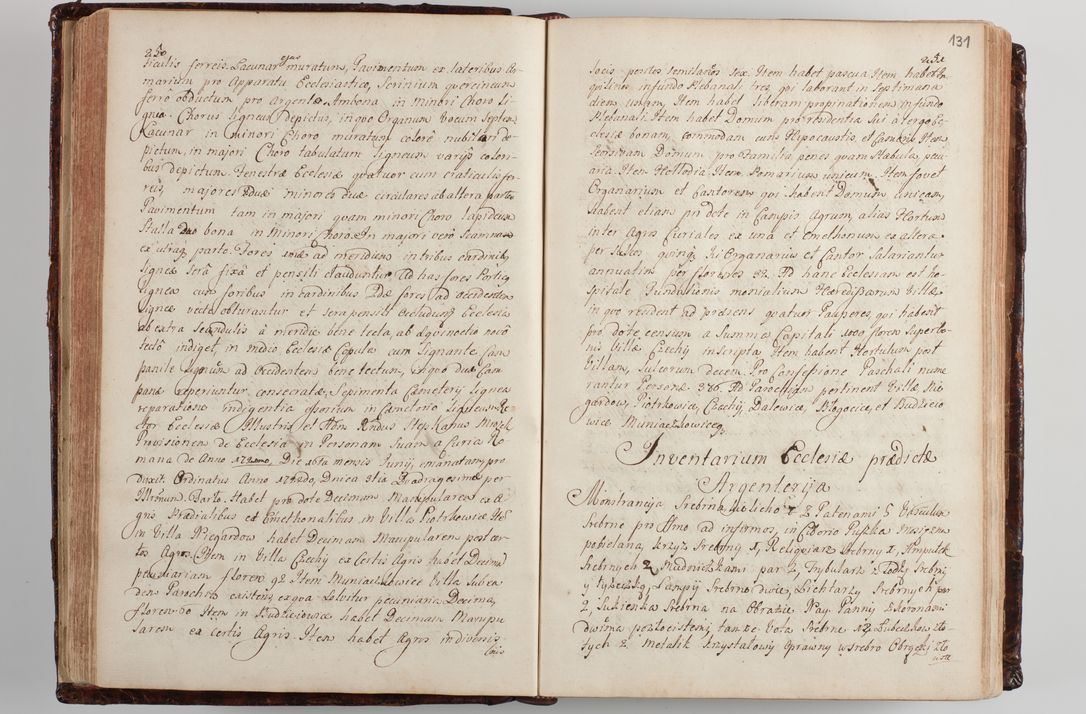 250
ticulis ferreis. Lacunar ejus muratum, Pavimentum ex lateribus Ar-
marium pro Apparatu Ecclesiastico, Scrinium quercineum
ferro obductum pro argento. Ambona in Minori Choro Li-
gnea. Chorus Ligneus depictus, in quo Organum Vocum Septem
Lacunar in Minori Choro muratum colore nubilari de-
pictum, in majori Choro tabulatum ligneum varijs colori-
bus depictum. Fenestræ Ecclesiæ quatuor cum craticulis fer-
reis, majores Duæ minores duæ circulares ab altera parte
Pavimentum tam in majori quam minori Choro lapideum
Stalla Duo bona in Minori Choro. In majori vero Scamna
ex utraq parte. Fores unæ ad meridiem in tribus cardinib9
ligneæ sera fixa et pensili clauduntur. Ad has fores Portic9
ligneus cum foribus in cardinibus. 2dæ fores ad Occidentem
ligneæ vecte obturantur et sera pensili Ecclesia
ab extra Scandulis à meridie bene tecta, ab Aquinoctio novo
tecto indiget, in medio Ecclesiæ Copula cum Signante Cam
panile Ligneum ad Occidentem bene tectum, in quo duæ Cam
panæ reperiuntur consecratæ, Sepimenta Cæmeterij lignea
reparatione indigentia in Cæmeterio Ligneum Re-
ctor Ecclesiæ Illustris et Adm Rndus Stephanus
Provisionem de Ecclesia in Personam Suam a Curia Ro
mana de Anno Die 26ta mensis Junij, emanatam, pro
duxit. Ordinatus Anno Dnica 3tia Quadragesimæ per
Habet pro dote Decimam Manipularem ex A
gris Prædialibus et Cmethonalibus in Villa Piotrkowice Ite
in Villa Niegardow habet Decimam Manipularem post cer-
tos Agros. Item in Villa Czechy ex Certis Agris habet Decima
pecuniariam floren 92 Item Muniaczkowice Villa Subea
dem Parochia existens, ex qua solvitur pecuniaria Decima,
floren 60 Item in Budzieiowice habet Decimam Manipu
larem ex Certis Agris. Item habet Agros indivensis
locis

131
251
locis penes semitarios Sex. Item habet pascua. Item habet In
quilinos in fundo Plebanali tres, qui laborant in Septimana
diem unum. Item habet liberam propinationem in fundo
Plebanali. Item habet Domum pro residentia Sui à tergo Ec-
clesiæ bonam, commodam cum Hypocaustis, et Cameris. Item
seorsivam Domum pro Familia, penes quam Stabula, pecu-
aria. Item Item Pomarium unicum. Item fovet
Organarium et Cantorem, qui habent Domum unicam,
habent etiam pro dote in Campis Agrum, alias Hortum
inter Agros Curiales ex una et Cmethonum ex altera
per Sulcos quinq Hi Organarius et Cantor Salariantur
annuatim per florenos 32. Ad hanc Ecclesiam est ho-
spitale Fundationis monialium Hæredissarum Villæ
in quo resident ad præsens quatuor Pauperes, qui habent
pro dote censum a Summa Capitali 1000 floren super bo-
nis Villæ Czechy inscripta. Item habent Hortulum post
Villam, Sulcorum decem. Pro Confessione Paschali nume
rantur Personæ 386. Ad Parochiam pertinent Villæ Nie
gardow, Piotrkowice, Czechy, Dalewice, Błogocice, et Budzieio
wice Muniaczkowice q
Inventarium Ecclesiæ prædictæ
Argenterija
Monstrancija Srebrna, z 2 Patenami 5 Vasculum
Srebrne pro Smo ad infirmos, in Ciborio Puszka
pobielana, krzyż Srebrny 1, Reliquiarz Srebrny 1, Ampułek
Srebrnych 2, Miednicżkami par 2, Trybularz z Łodką Srebrną
y łyżeczką, Lampy Srebrne dwie, Lichtarzy Srebrnych par
2, Sukienka Srebrna na Obrazie Nay: Panny z koronami
dwiema pozłocistemi, tamże Vota Srebrne Łubeczkow zło-
tych 2, Metalik krzyształowy oprawny w srebro Obrączki zło